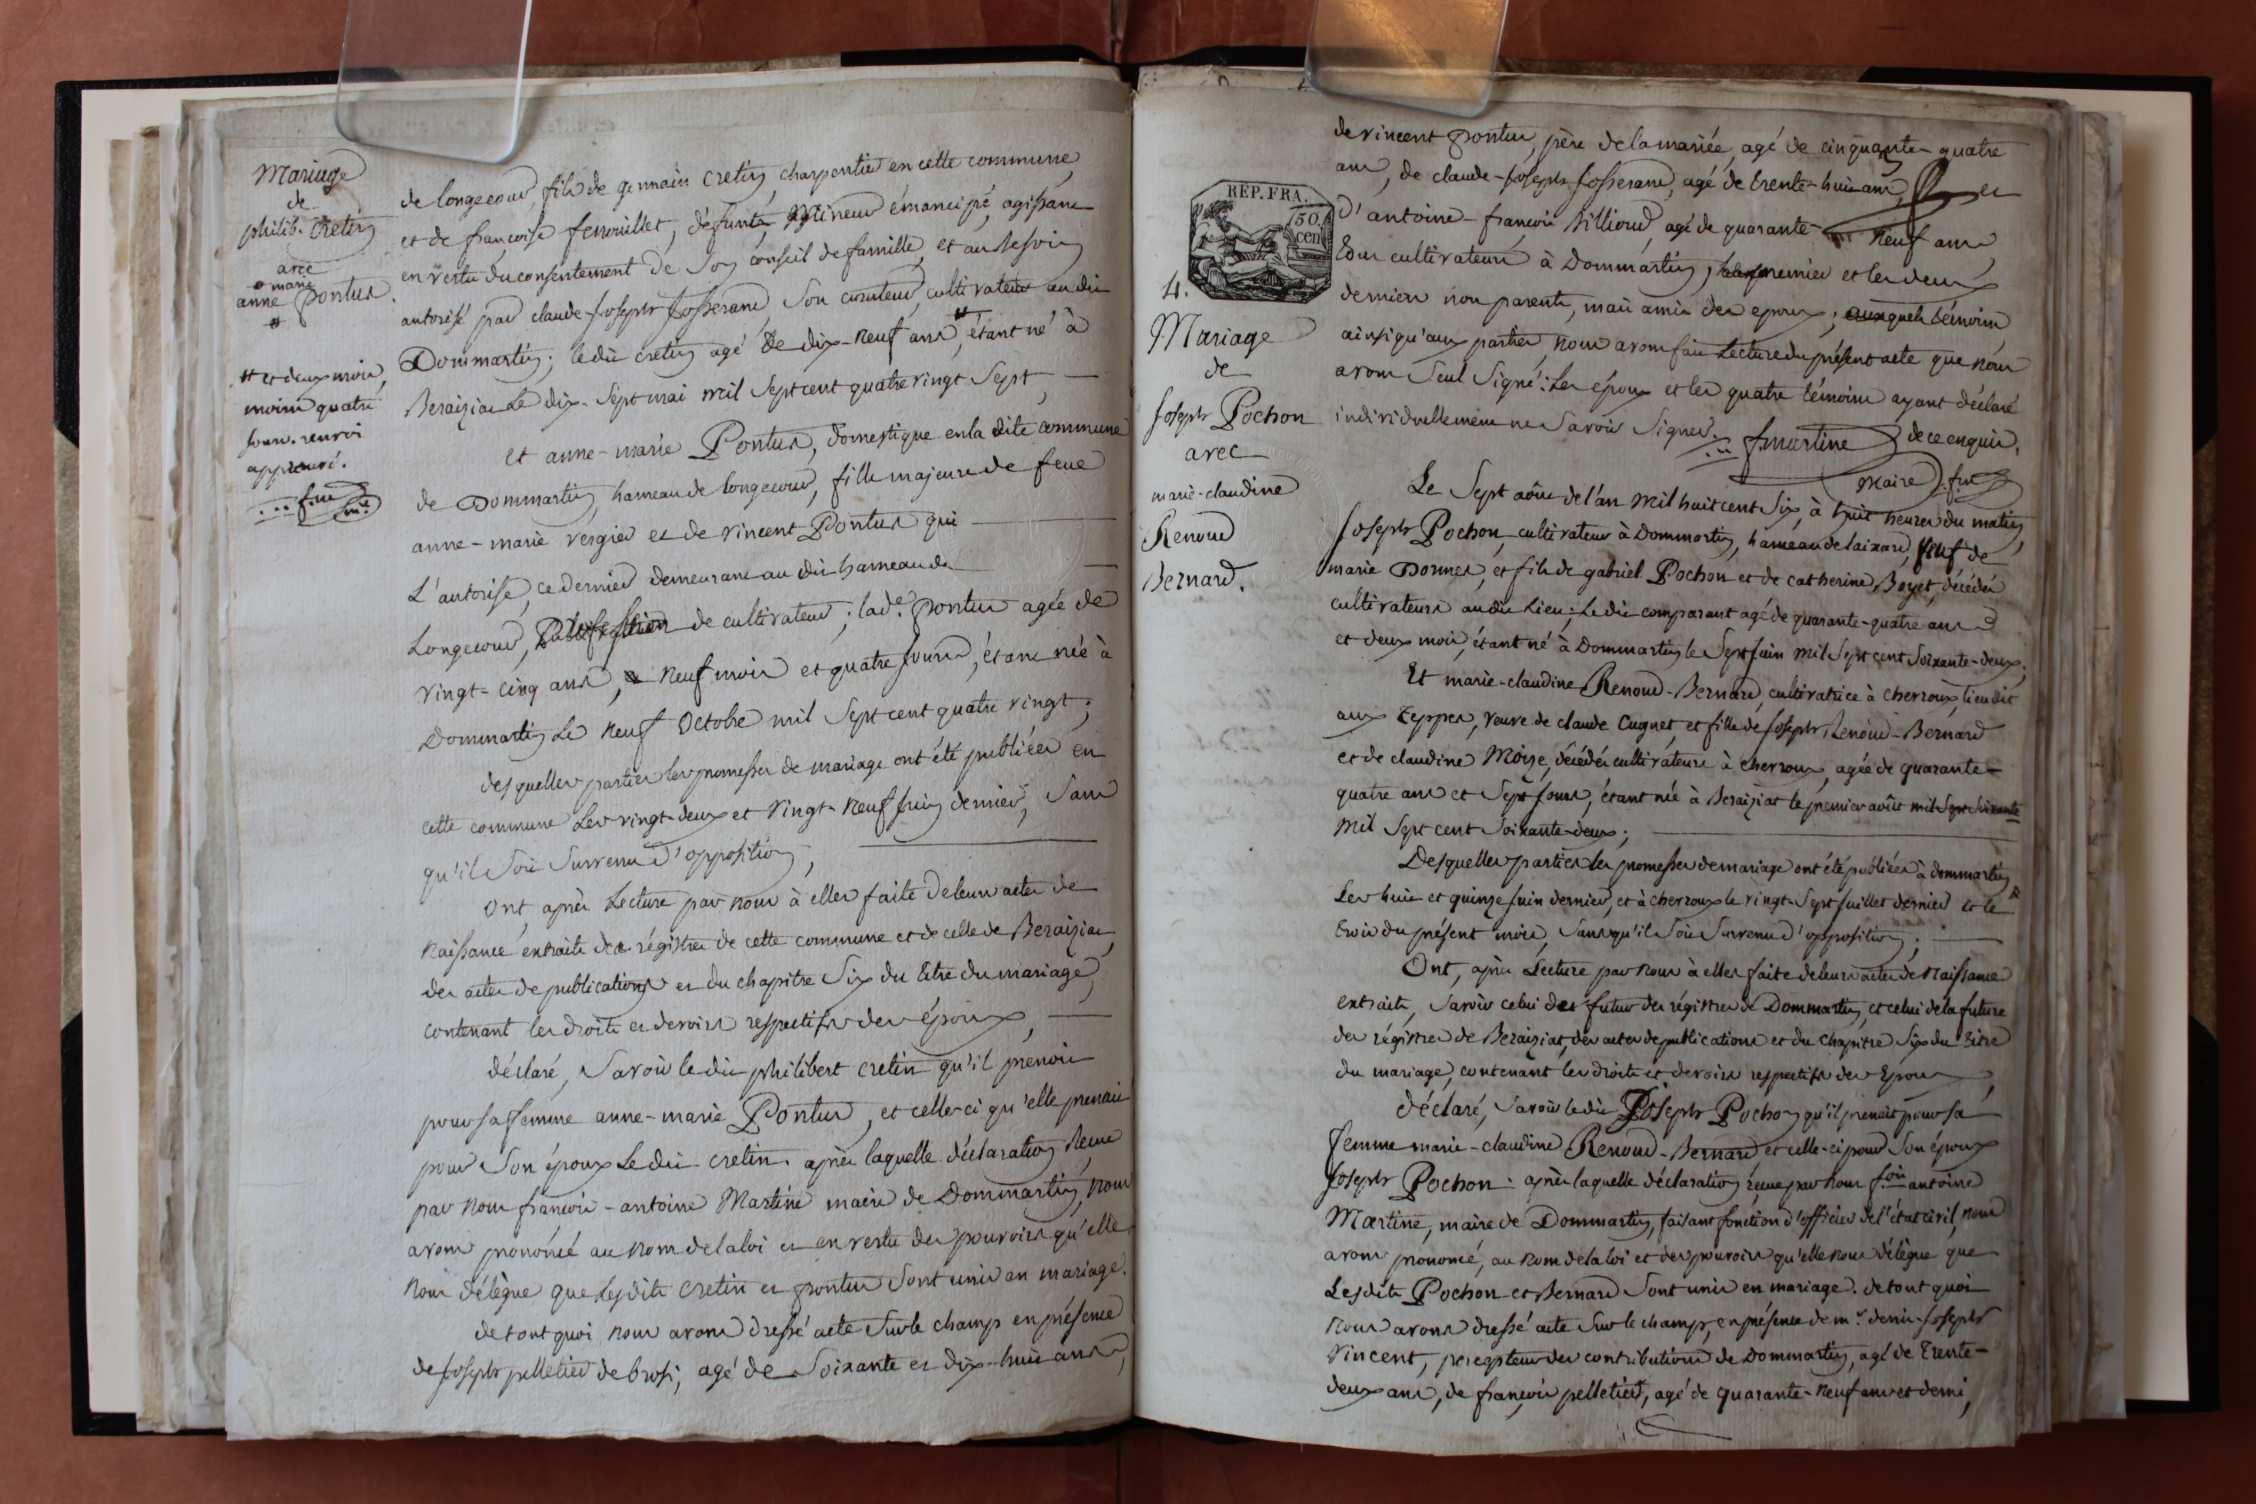 Mariage
de
philib. Cretin
avec
anne marie
Pontus
# et deux mois,
moins quatre
jours. renvoi
approuvé.
de longecour, fils de germain Cretin, charpentier en cette commune,
et de françoise fenouillet, défunte, Mineur émancipé, agissant
en vertu du consentement de Son conseil de famille, et au besoin
autorisé par claude-Joseph Josserand, Son curateur, cultivateur au dit
Dommartin; le dit cretin agé de dix-neuf ans #, étant né à
Beraiziat Le dix-Sept mai mil Sept cent quatre vingt Sept,
Et anne-marie Pontus, domestique en la dite commune
de Dommartin, hameau de longecour, fille majeure de feue
anne-marie vergier et de vincent Pontus qui
L'autorise, ce dernier demeurant au dit hameau de
Longecour, Profession de cultivateur; lad.e pontus agée de
vingt-cinq ans, neuf mois et quatre jours, étant née à
Dommartin Le neuf Octobre mil Sept cent quatre vingt;
desquelles parties les promesses de mariage ont été publiées en
cette commune Les vingt-deux et vingt-neuf juin dernier, Sans
qu'il Soit Survenu d'opposition,
Ont après Lecture par nous à elles faite de leurs actes de
Naissance extraits des régistres de cette commune et de celle de Beraiziat,
des actes de publications et du chapitre Six du titre du mariage,
contenant les droits et devoirs respectifs des époux,
déclaré, Savoir le dit philibert cretin qu'il prenoit
pour sa femme anne-marie Pontus, et celle-ci qu'elle prenait
pour Son époux Le dit cretin. après laquelle déclaration Reçue
par nous françois-antoine Martine maire de Dommartin, nous
avons prononcé au nom de la loi et en vertu des pouvoirs qu'elle
Nous délègue que Lesdits cretin et pontus Sont unis en mariage.
de tout quoi nous avons dressé acte Sur le champ en présence
de Joseph pelletier de brosi, agé de Soixante et dix-huit ans,
RÉP. FRA.
50
cen
4.
Mariage
de
Joseph Pochon
avec
marie-claudine
Renoud
Bernard.
de vincent pontus, père de la mariée, agé de cinquante-quatre
ans, de claude-Joseph Josserand, agé de trente-huit ans, et
d'antoine-françois billioud, agé de quarante-neuf ans,
tous cultivateurs à Dommartin, le premier et les deux
derniers non parents, mais amis des epoux; auxquels témoins
ainsi qu'aux parties, nous avons fait Lecture du présent acte que nous
avons Seul Signé: Les époux et les quatre témoins ayant déclaré
individuellement ne Savoir Signer, de ce enquis.
f. martine
maire
Le Sept août de l'an Mil huit cent Six, à huit heures du matin,
Joseph Pochon, cultivateur à Dommartin, hameau de laizard, veuf de
marie Donnes, et fils de gabriel Pochon et de catherine Boyet, décédés
cultivateurs au dit Lieu; Le dit comparant agé de quarante-quatre ans
et deux mois, étant né à Dommartin le Sept juin Mil Sept cent Soixante-deux;
Et marie-claudine Renoud-Bernard, cultivatrice à cherroux, lieu dit
aux teppes, veuve de claude Cugnet et fille de Joseph Renoud-Bernard
et de claudine Moize, décédés cultivateurs à cherroux, agée de quarante-
quatre ans et Sept jours, étant née à Beraiziat le premier août mil Sept Soixante
Mil Sept cent Soixante-deux;
Desquelles parties les promesses de mariage ont été publiées à dommartin
Les huit et quinze juin dernier, et à cherroux le vingt-Sept juillet dernier et le
trois du présent mois, Sans qu'il Soit Survenu d'opposition;
Ont, après Lecture par nous à elles faite de leurs actes de Naissance
extraits, Savoir celui des futur des régistres de Dommartin, et celui de la future
des régistres de Beraiziat, des actes de publications et du chapitre Six du titre
du mariage, contenant les droits et devoirs respectifs des Epoux,
déclaré, Savoir le dit Joseph Pochon qu'il prenoit pour sa
femme marie-claudine Renoud-Bernard et celle-ci pour Son époux
Joseph Pochon. après laquelle déclaration reçue par nous f.ois antoine
Martine, maire de Dommartin, faisant fonction d'officier de l'état civil, nous
avons prononcé, au nom de la loi et des pouvoirs qu'elle nous délègue que
Lesdits Pochon et Bernard Sont unis en mariage. de tout quoi
nous avons dressé acte Sur le champ, en présence de m.r denis-Joseph
Vincent, percepteur des contributions de Dommartin, agé de trente-
deux ans, de françois pelletier, agé de quarante-neuf ans et demi,